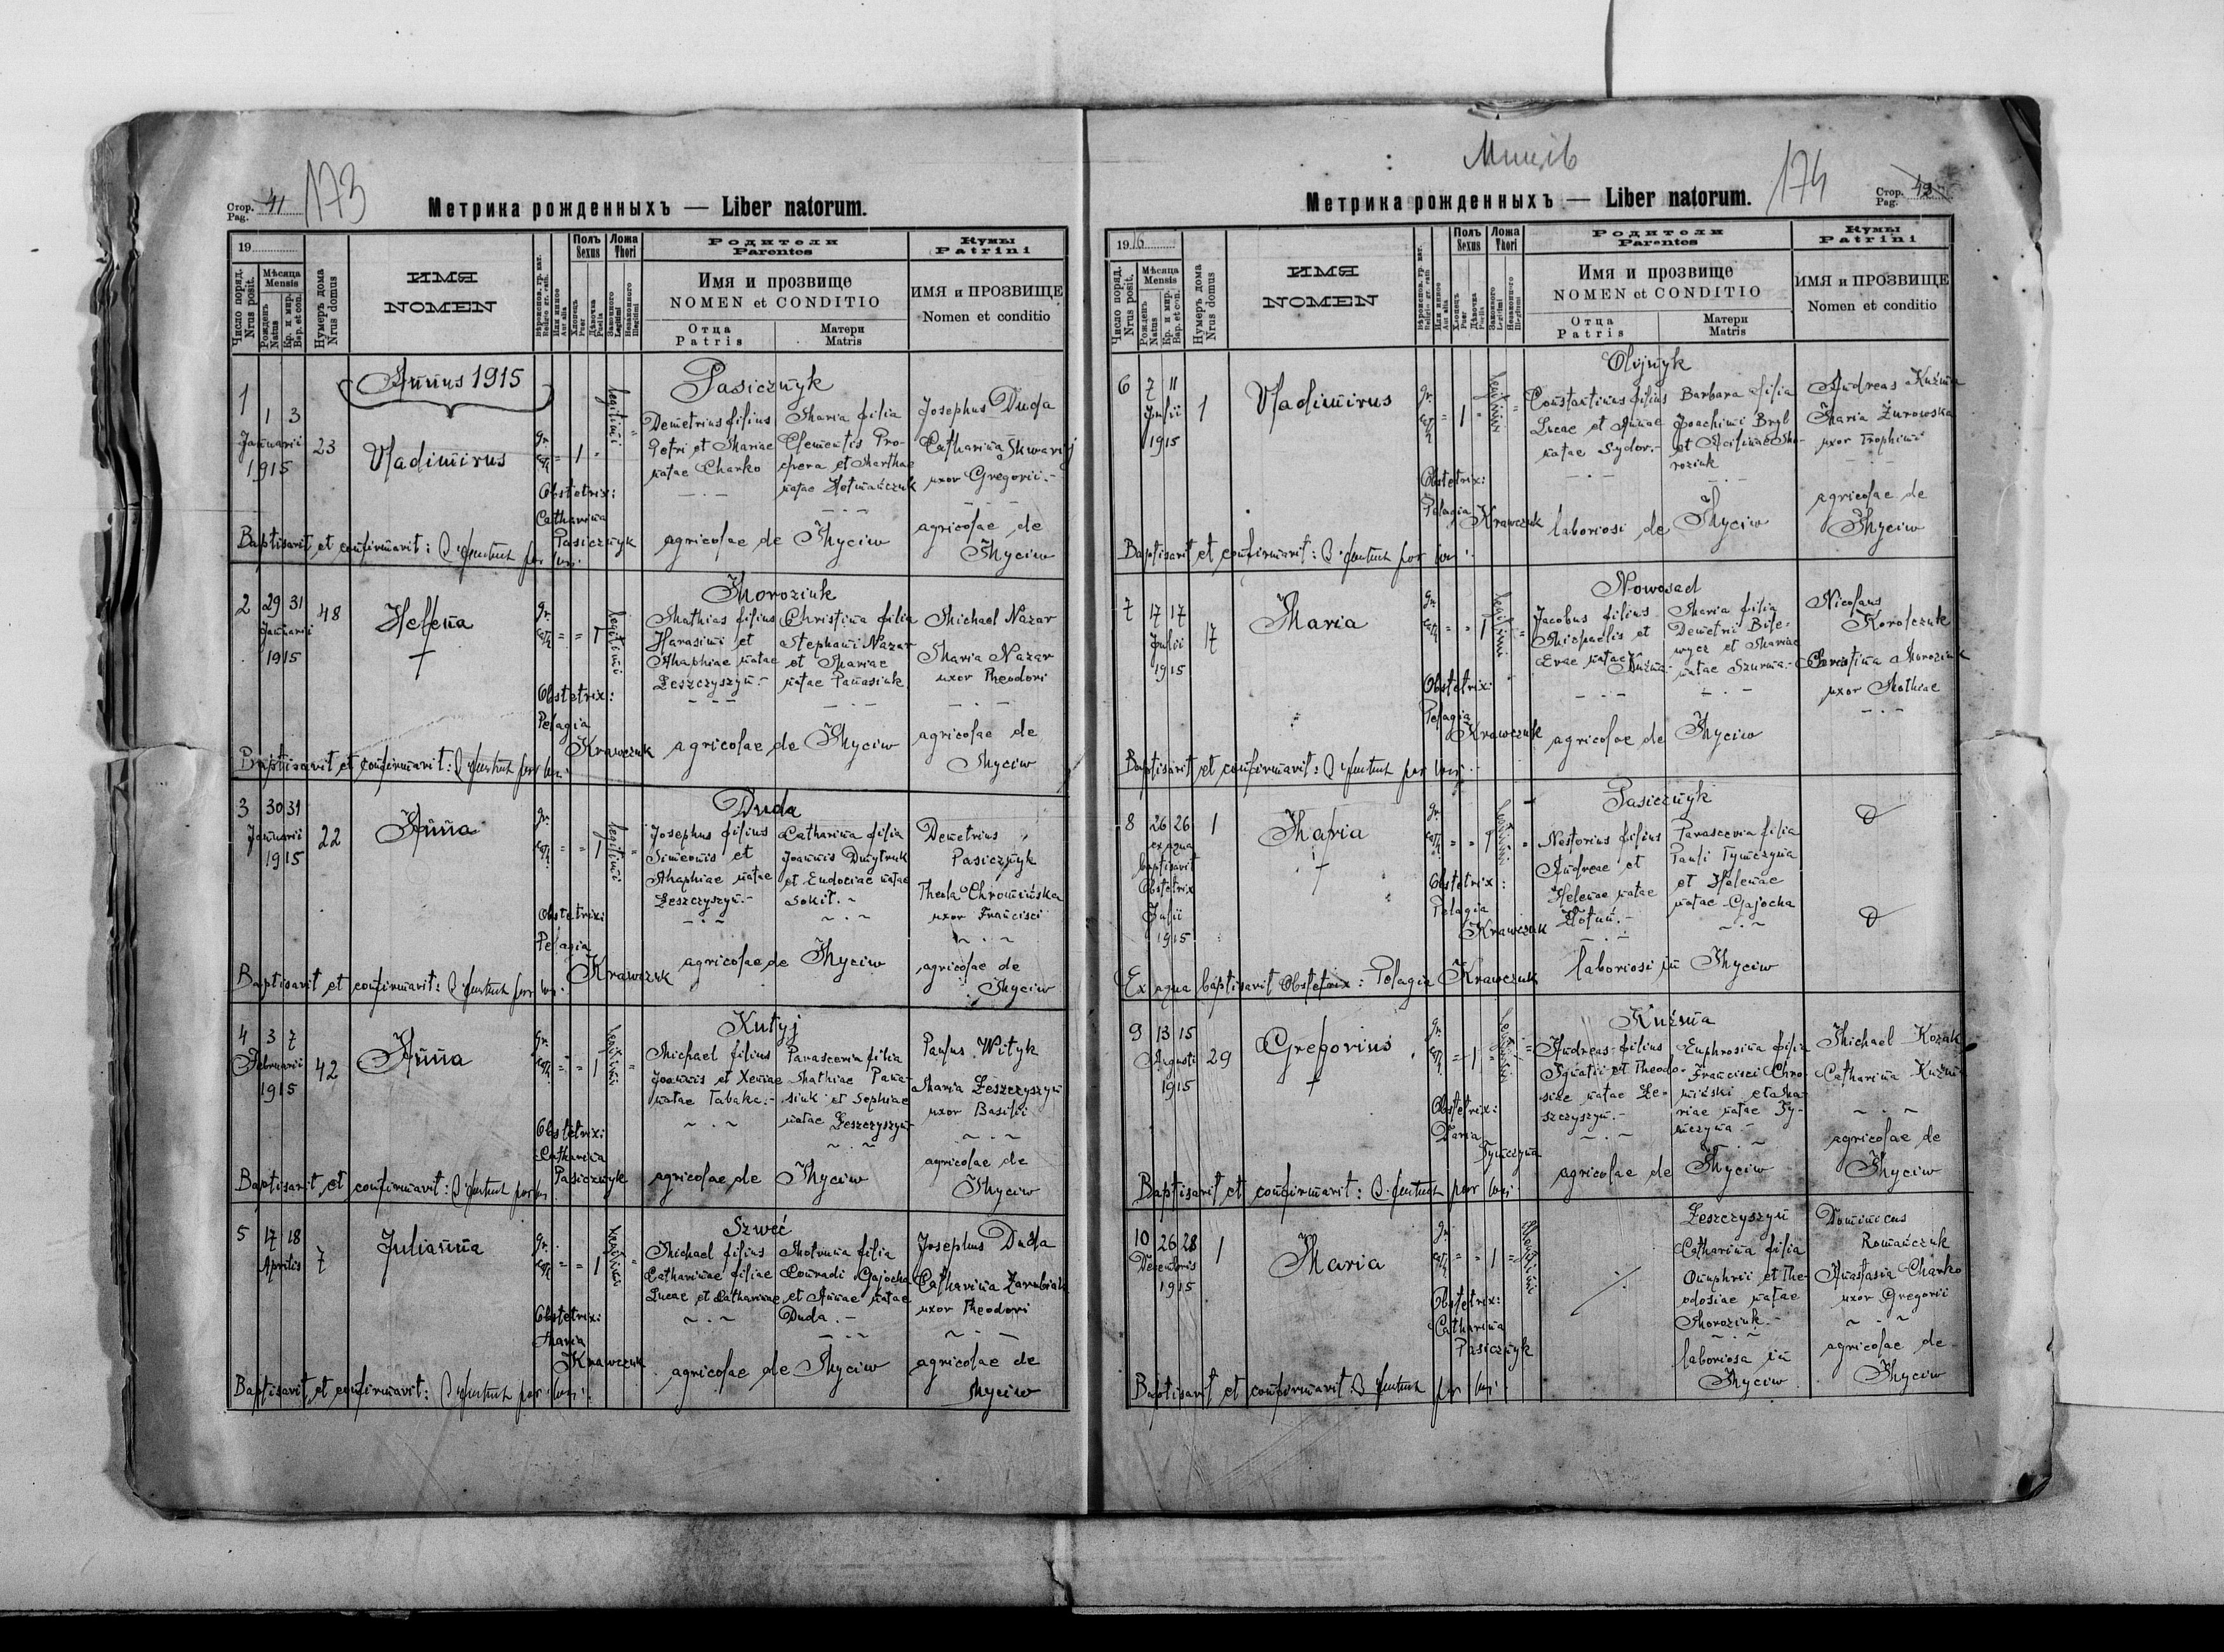 Стор. Pag. 41
173
Метрика рожденныхъ — Liber natorum.
19
Число поряд. Nrus posit.
Мѣсяца Mensis
Рожденъ Natus
Кр. и мир. Bap. et con.
Нумеръ дома Nrus domus
ИМЯ
NOMEN
Полъ Sexus
Ложа Thori
Родители
Parentes
Имя и прозвище
NOMEN et CONDITIO
Отца Patris
Матери Matris
Кумы
Patrini
ИМЯ и ПРОЗВИЩЕ
Nomen et conditio
Annus 1915
1
1 3
Januarii
1915
23
Vladimirus
gr. cath.
1
legitimi
Obstetrix:
Catharina
Pasicznyk
Pasicznyk
Demetrius filius
Petri et Mariae
natae Charko
Maria filia
Clementis Pro-
et Marthae
natae Hetmańczuk
agricolae de Myciw
Josephus Duda
Catharina
uxor Gregorii.-
agricolae de
Myciw
Baptisavit et confirmavit:
2
29 31
Januarii
1915
48
Helena
gr. cath.
1
legitimi
Obstetrix:
Pelagia
Krawczuk
Moroziuk
Mathias filius
Harasimi et
Ahaphiae natae
Leszczyszyn.-
Christina filia
Stephani Nazar
et Mariae
natae Panasiuk
agricolae de Myciw
Michael Nazar
Maria Nazar
uxor Theodori
agricolae de
Myciw
Baptisavit et confirmavit:
3
30 31
Januarii
1915
22
Anna
gr. cath.
1
legitimi
Obstetrix:
Pelagia
Krawczuk
Duda
Josephus filius
Simeonis et
Ahaphiae natae
Leszczyszyn.-
Catharina filia
Joannis Dmytruk
et Eudociae natae
Sokit.
agricolae de Myciw
Demetrius
Pasicznyk
Thecla Chromińska
uxor Francisci
agricolae de
Myciw
Baptisavit et confirmavit:
4
3 7
Februarii
1915
42
Anna
gr. cath.
1
legitimi
Obstetrix:
Catharina
Pasicznyk
Kutyj
Michael filius
Joannis et Xeniae
natae Tabaka.-
Parascevia filia
Mathiae Pana-
siuk et Sophiae
natae Leszczyszyn
agricolae de Myciw
Paulus Wityk
Maria Leszczyszyn
uxor Basilii
agricolae de
Myciw
Baptisavit et confirmavit:
5
17 18
Aprilis
7
Julianna
gr. cath.
1
legitimi
Obstetrix:
Maria
Krawczuk
Szweć
Michael filius
Catharinae filiae
Lucae et Catharinae
Motruna filia
Conradi Gajocha
et Annae natae
Duda.-
agricolae de Myciw
Josephus Duda
Catharina
uxor Theodori
agricolae de
Myciw
Baptisavit et confirmavit:
Мицѣв
174
Стор. Pag. 42
Метрика рожденныхъ — Liber natorum.
1916
Число поряд. Nrus posit.
Мѣсяца Mensis
Рожденъ Natus
Кр. и мир. Bap. et con.
Нумеръ дома Nrus domus
ИМЯ
NOMEN
Полъ Sexus
Ложа Thori
Родители
Parentes
Имя и прозвище
NOMEN et CONDITIO
Отца Patris
Матери Matris
Кумы
Patrini
ИМЯ и ПРОЗВИЩЕ
Nomen et conditio
6
7 11
Julii
1915
1
Vladimirus
gr. cath.
1
legitimi
Obstetrix:
Pelagia Krawczuk
Olijnyk
Constantinus filius
Lucae et Annae
natae Sydor.-
Barbara filia
Joachimi Bryl
et Mo-
roziuk
laboriosi de Myciw
Andreas Kuźma
Maria Żurowska
uxor Trophimi
agricolae de
Myciw
Baptisavit et confirmavit:
7
17 17
Julii
1915
17
Maria
gr. cath.
1
legitimi
Obstetrix:
Pelagia
Krawczuk
Nowosad
Jacobus filius
Michaelis et
Evae natae
Kuźma
Maria filia
Demetri Bile-
wycz et Mariae
natae Szurma.-
agricolae de Myciw
Nicolaus
Korolczuk
Christina Moroziuk
uxor Mathiae
Baptisavit et confirmavit:
8
26 26
ex aqua
baptisavit
Obstetrix
Julii
1915
1
Maria
gr. cath.
1
legitimi
Obstetrix:
Pelagia
Krawczuk
Pasicznyk
Nestorius filius
Andreae et
Helenae natae
Parascevia filia
Pauli Tymczyna
et Helenae
natae Gajocha
laboriosi in Myciw
Ex aqua baptisavit Obstetrix: Pelagia Krawczuk
9
13 15
Augusti
1915
29
Gregorius
gr. cath.
1
legitimi
Obstetrix:
Daria
Tymczyna
Kuźma
Andreas filius
Ignatii et Theodo-
siae natae Le-
szczyszyn.-
Euphrosina filia
Francisci Chro-
miński et Ma-
riae natae Ty-
mczyna.-
agricolae de Myciw
Michael Kozak
Catharina Kuźma
agricolae de
Myciw
Baptisavit et confirmavit:
10
26 28
Decembris
1915
1
Maria
gr. cath.
1
illegitimi
Obstetrix:
Catharina
Pasicznyk
Leszczyszyn
Catharina filia
Onuphrii et The-
odosiae natae
Moroziuk.-
laboriosa in
Myciw
Dominicus
Romańczuk
Anastasia Charko
uxor Gregorii
agricolae de
Myciw
Baptisavit et confirmavit: